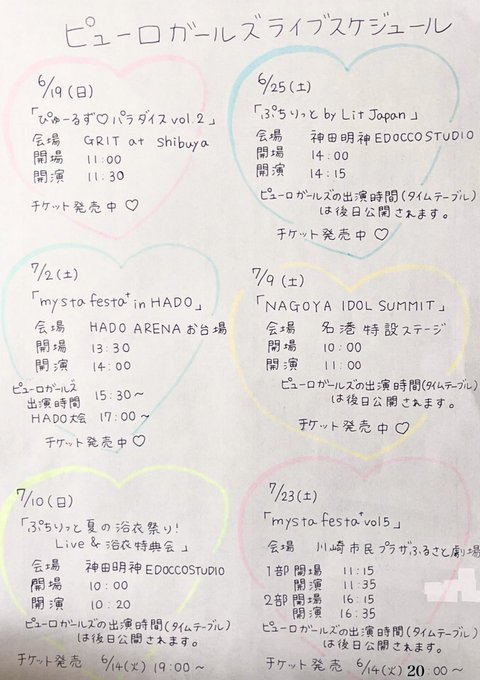 ピューロガールズライブスケジュール
6/19(日)
「ぴゅーるず♡パラダイスvol.2」
会場 GRIT at Shibuya
開場 11:00
開演 11:30
チケット発売中♡
6/25(土)
「ぷちりっと by Lit Japan」
会場 神田明神EDOCCOSTUDIO
開場 14:00
開演 14:15
ピューロガールズの出演時間(タイムテーブル)
は後日公開されます。
チケット発売中♡
7/2(土)
「mysta festa⁺ in HADO」
会場 HADO ARENA お台場
開場 13:30
開演 14:00
ピューロガールズ
出演時間 15:30~
HADO大会 17:00~
チケット発売中♡
7/9(土)
「NAGOYA IDOL SUMMIT」
会場 名港特設ステージ
開場 10:00
開演 11:00
ピューロガールズの出演時間(タイムテーブル)
は後日公開されます。
チケット発売中♡
7/10(日)
「ぷちりっと夏の浴衣祭り!
Live&浴衣特典会」
会場 神田明神EDOCCOSTUDIO
開場 10:00
開演 10:20
ピューロガールズの出演時間(タイムテーブル)
は後日公開されます。
チケット発売 6/14(火) 19:00~
7/23(土)
「mysta festa⁺vol5」
会場 川崎市民プラザふるさと劇場
1部開場 11:15
開演 11:35
2部開場 16:15
開演 16:35
ピューロガールズの出演時間(タイムテーブル)
は後日公開されます。
チケット発売 6/14(火) 20:00~